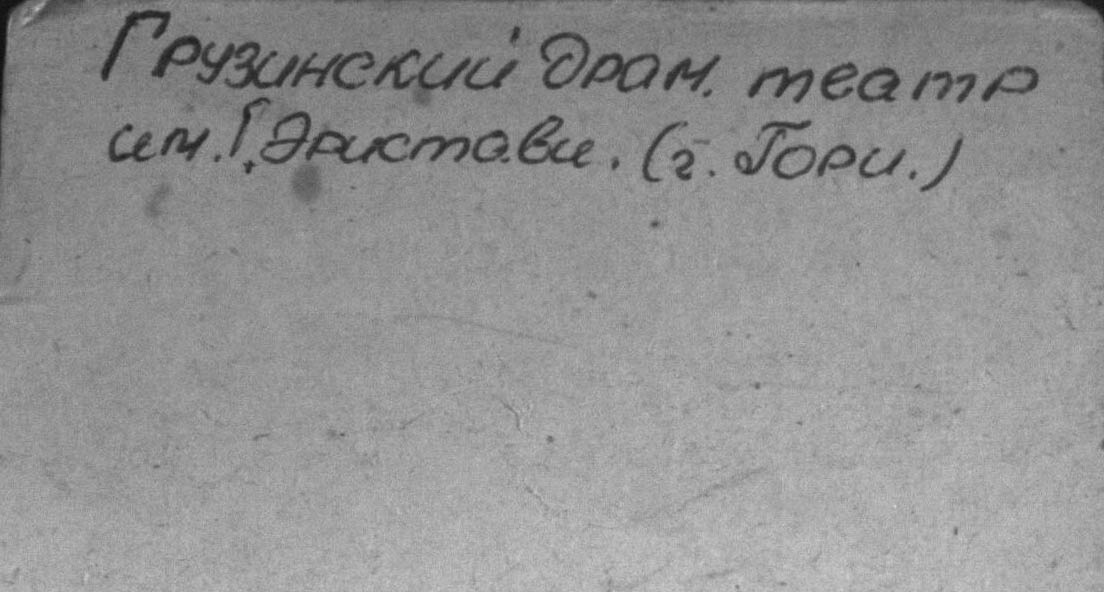 Грузинский драм. театр
им. Г. Эристави. (г. Гори.)